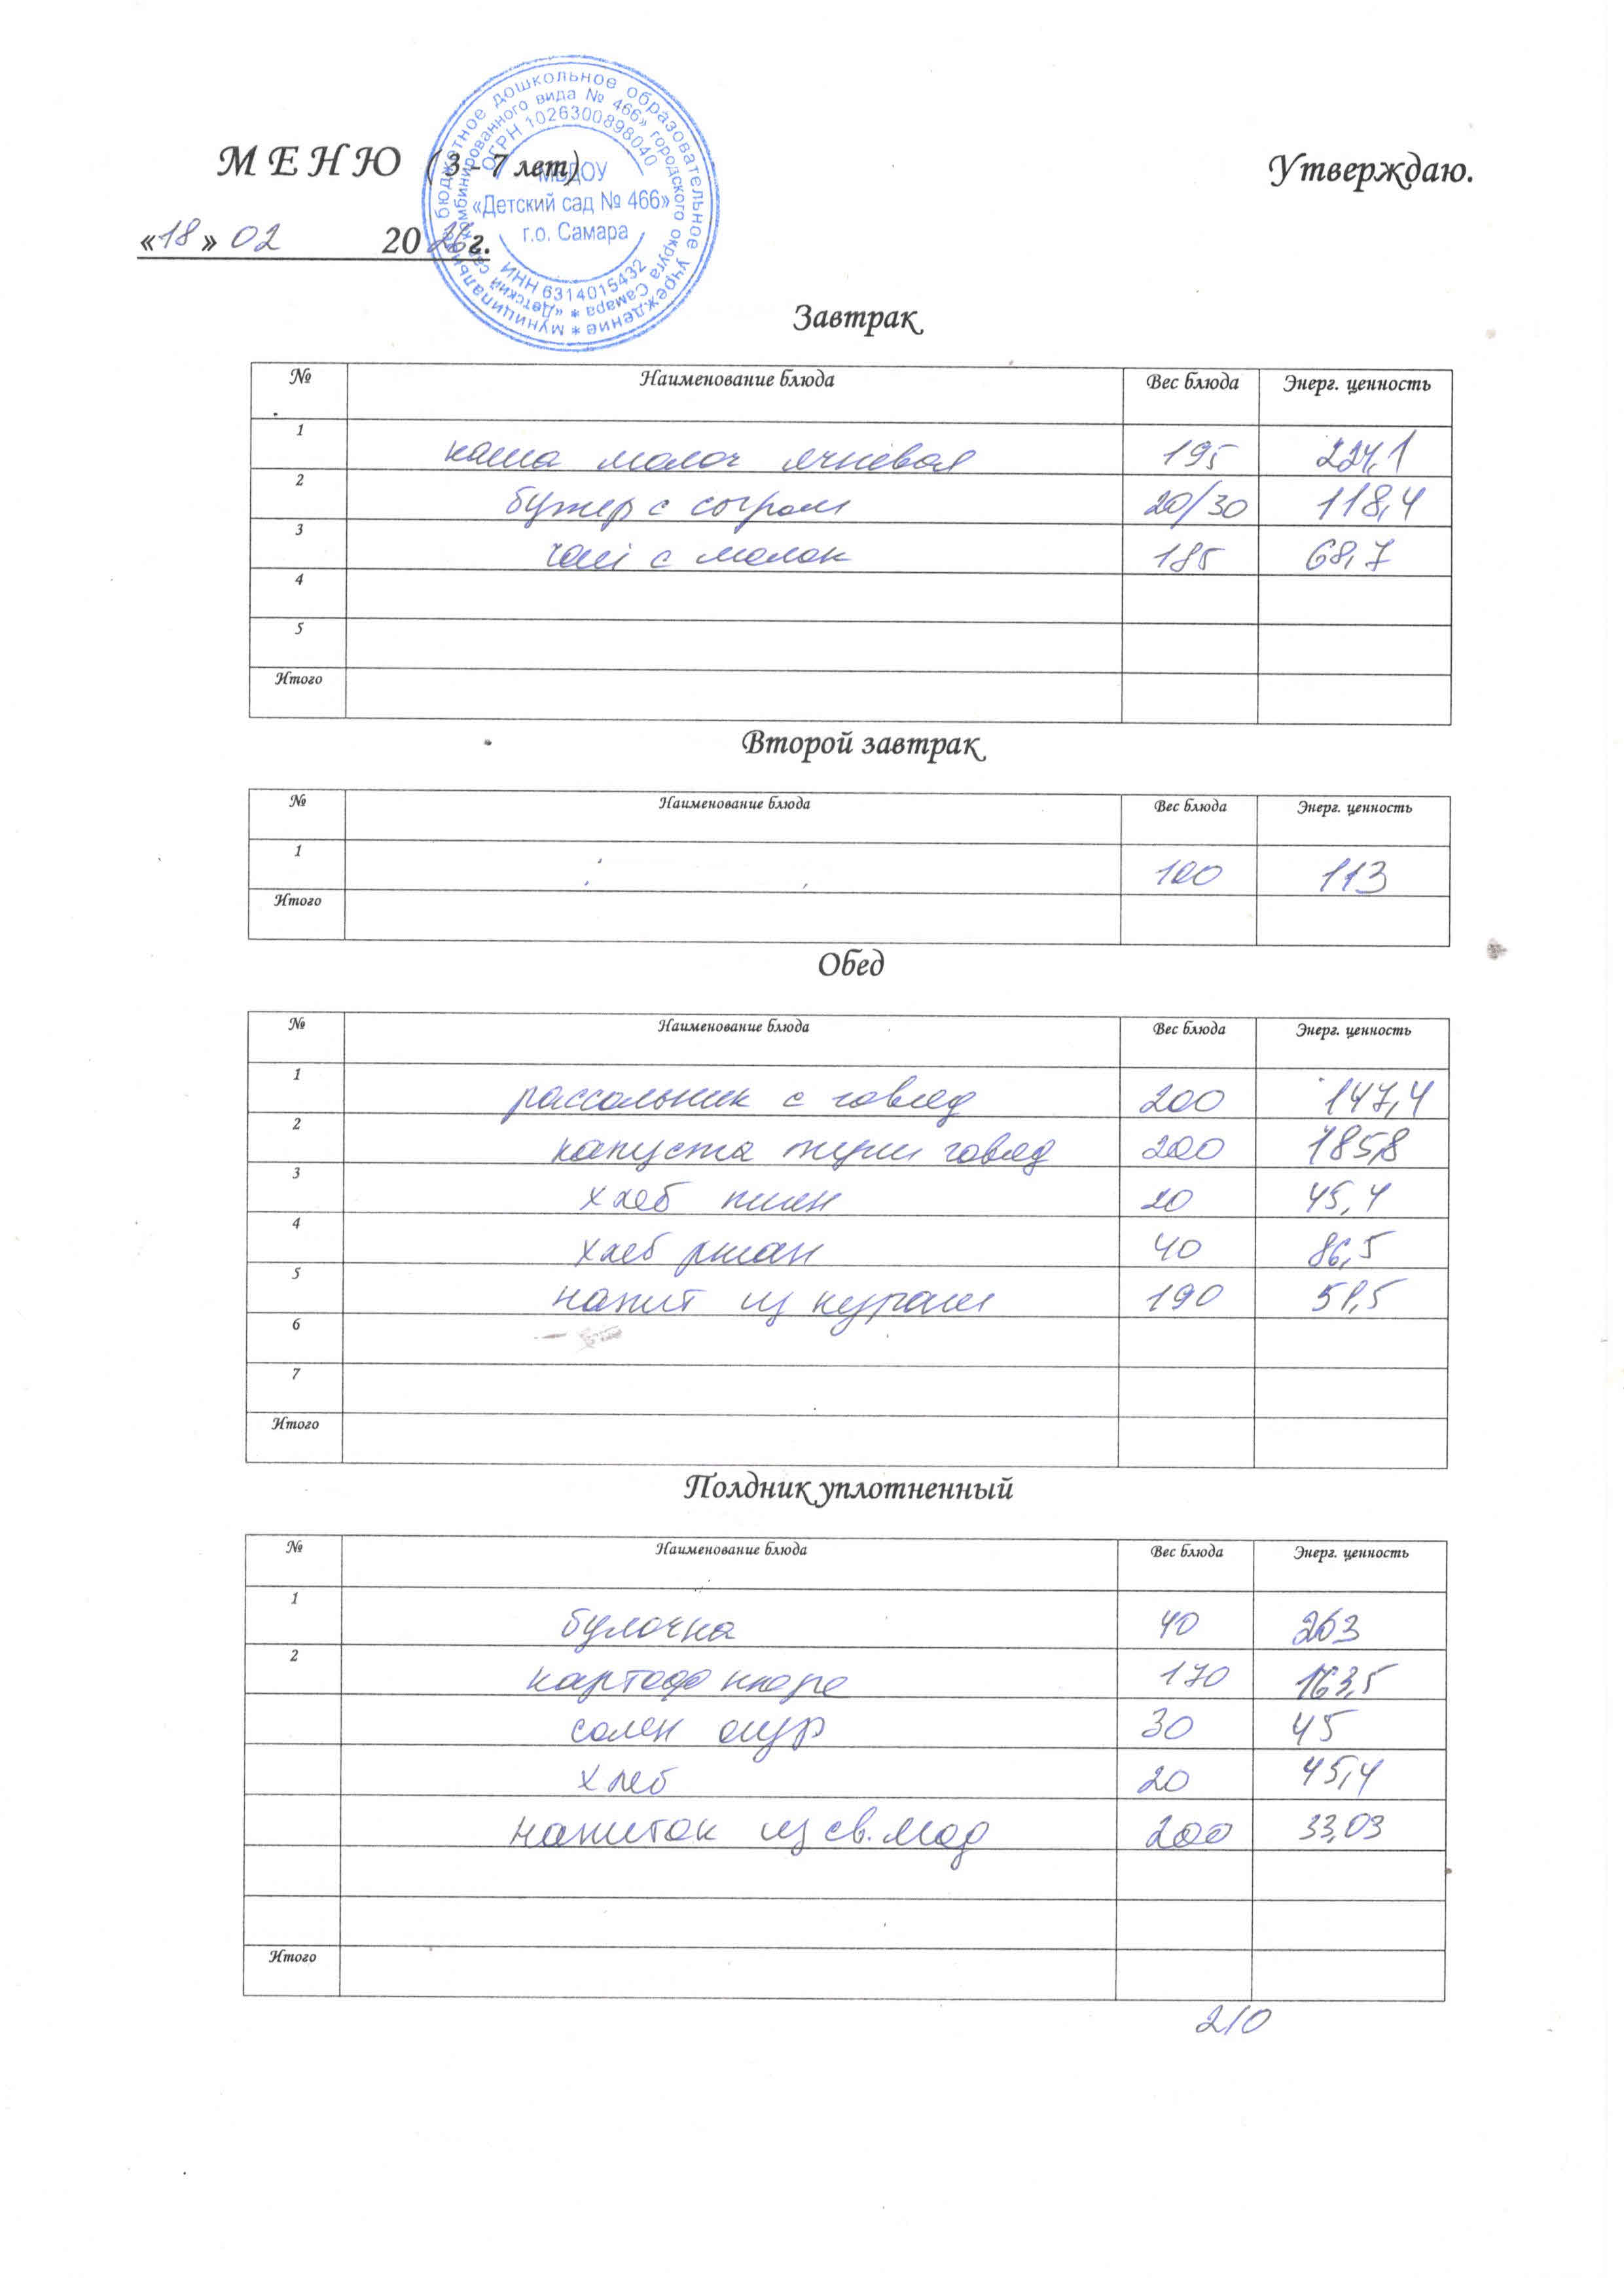 МЕНЮ (3 - 7 лет)
Утверждаю.
«18» 02 2026г.
муниципальное бюджетное дошкольное образовательное учреждение * «Детский сад комбинированного вида № 466» городского округа Самара *
ОГРН 1026300898040
МБДОУ
«Детский сад № 466»
г.о. Самара
ИНН 6314015432
Завтрак
№ Наименование блюда Вес блюда Энерг. ценность
1 каша молоч ячневая 195 224,1
2 бутер с сыром 20/30 118,4
3 чай с молок 185 68,7
4
5
Итого
Второй завтрак
№ Наименование блюда Вес блюда Энерг. ценность
1 100 113
Итого
Обед
№ Наименование блюда Вес блюда Энерг. ценность
1 рассольник с говяд 200 147,4
2 капуста туш говяд 200 185,8
3 хлеб пшен 20 45,4
4 хлеб ржан 40 86,5
5 напит из кураги 190 51,5
6
7
Итого
Полдник уплотненный
№ Наименование блюда Вес блюда Энерг. ценность
1 булочка 40 263
2 картоф пюре 170 163,5
солен огур 30 45
хлеб 20 45,4
напиток из св. 200 33,03
Итого
210